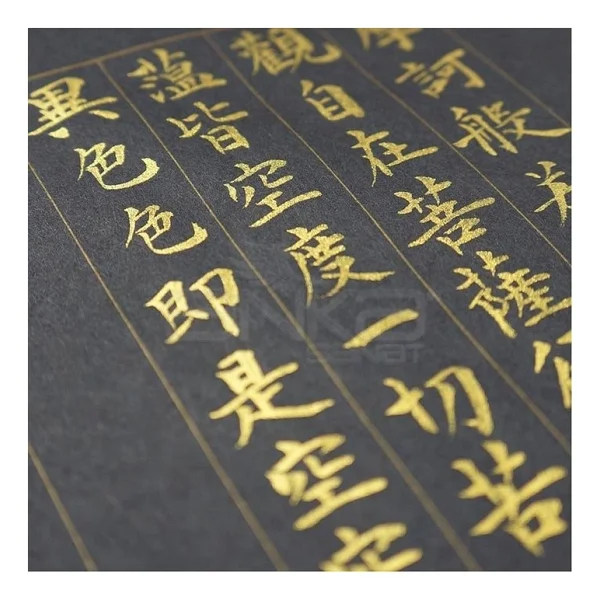 訶般
觀自在菩薩
薀皆空度一切苦
異色色即是空空
anka
SANAT